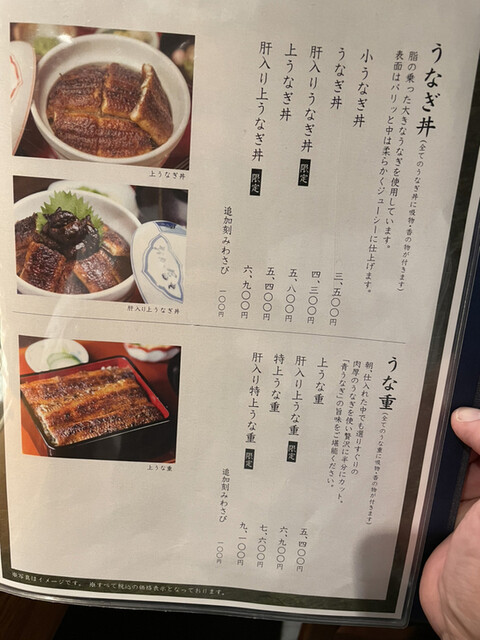 うなぎ丼(全てのうなぎ丼に吸物・香の物が付きます)
脂の乗った大きなうなぎを使用しています。
表面はパリッと中は柔らかくジューシーに仕上げます。
小うなぎ丼 三、五〇〇円
うなぎ丼 四、三〇〇円
肝入りうなぎ丼 限定 五、八〇〇円
上うなぎ丼 五、四〇〇円
肝入り上うなぎ丼 限定 六、九〇〇円
追加刻みわさび 一〇〇円
上うなぎ丼
肝入り上うなぎ丼
うな重(全てのうな重に吸物・香の物が付きます)
朝、仕入れた中でも選りすぐりの
肉厚のうなぎを使い贅沢に半分にカット。
「青うなぎ」の旨味をご堪能ください。
上うな重 五、四〇〇円
肝入り上うな重 限定 六、九〇〇円
特上うな重 七、六〇〇円
肝入り特上うな重 限定 九、一〇〇円
追加刻みわさび 一〇〇円
上うな重
※写真はイメージです。 ※すべて税込の価格表示となっております。